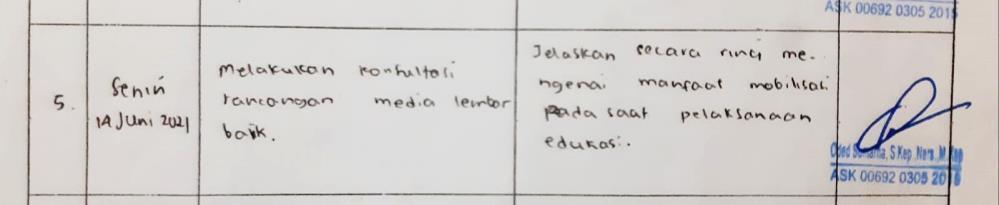 ASK 00692 0305 2015
5.
Senin
14 Juni 2021
Melakukan konsultasi
rancangan media lembar
balik.
Jelaskan secara rinci me-
ngenai manfaat mobilisasi
pada saat pelaksanaan
edukasi.
S.Kep.,Ners.,M.Kep
ASK 00692 0305 2015